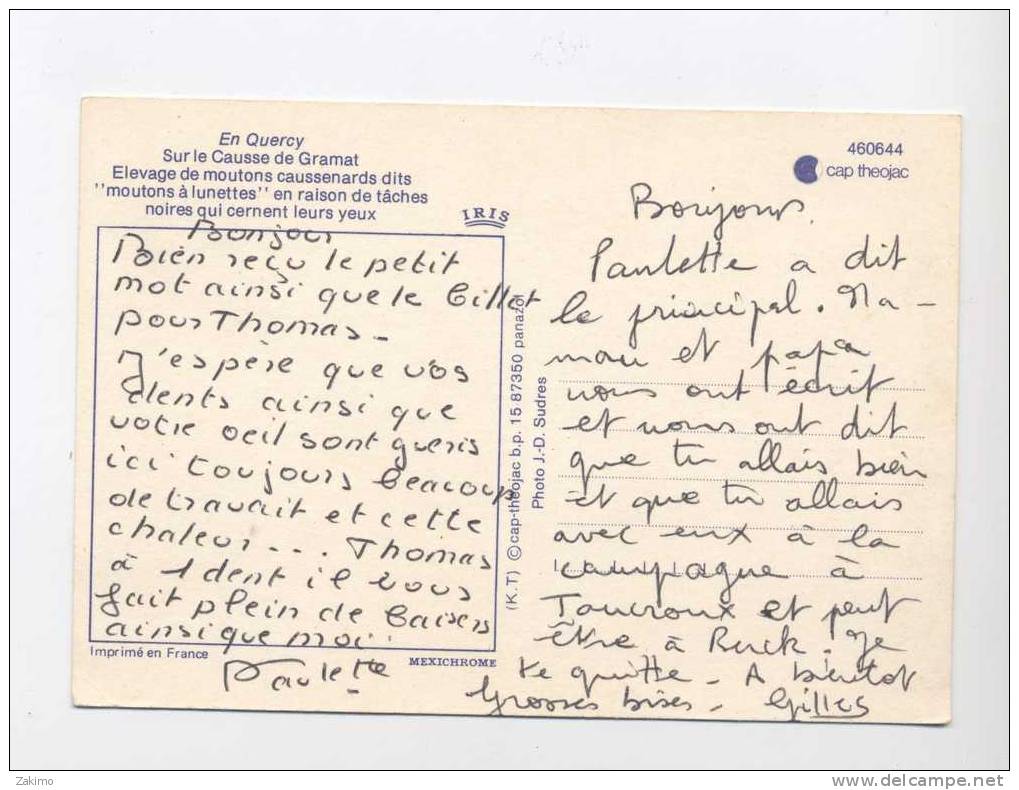 En Quercy
Sur le Causse de Gramat
Elevage de moutons caussenards dits
"moutons à lunettes" en raison de tâches
noires qui cernent leurs yeux
IRIS
Bonjour
Bien reçu le petit
mot ainsi que le billet
pour Thomas.
J'espère que vos
dents ainsi que
votre oeil sont gueris
ici toujours beacoup
de travail et cette
chaleur... Thomas
à 1 dent il vous
fait plein de baisers
ainsi que moi
Paulette
Imprimé en France
MEXICHROME
(K.T) © cap-theojac b.p. 15 87350 panazol
Photo J.-D. Sudres
460644
cap theojac
Bonjour.
Paulette a dit
le principal. Ma-
man et papa
nous ont écrit
et nous ont dit
que tu allais bien
et que tu allais
avec eux à la
campagne à
et peut
être à Ruck. Je
te quitte. A bientot
Grosses bises. Gilles
Zakimo
www.delcampe.net